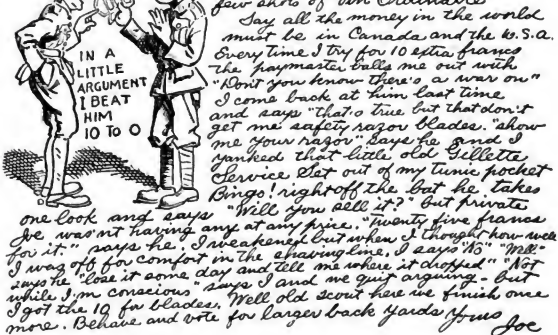 few shots of "Vin Ordinaire"
Say all the money in the world
must be in Canada and the U.S.A.
Every time I try for 10 extra francs
the paymaster balls me out with
"Don't you know there's a war on"
I come back at him last time
and says "that's true but that don't
get me safety razor blades." "show
me your razor" says he and I
yanked that little old Gillette
Service Set out of my tunic pocket
Bingo! right off the bat he takes
one look and says "Will you sell it?" but private
Joe was'nt having any at any price. "Twenty five francs
for it" says he. I weakened but when I thought how well
I was off for comfort in the shaving line, I says "No" "Well"
says he "lose it some day and tell me where it dropped" "Not
while I'm conscious" says I and we quit arguing - but
I got the 10 for blades. Well old scout here we finish once
more. Behave and vote for larger back yards Yours
Joe
IN A
LITTLE
ARGUMENT
I BEAT
HIM
10 TO 0